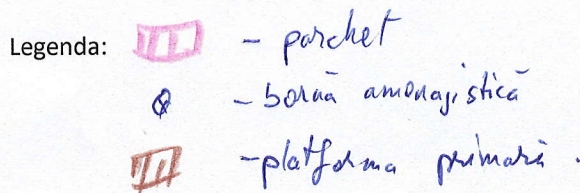 Legenda: - parchet
- bornă amenajistică
- platforma primară.